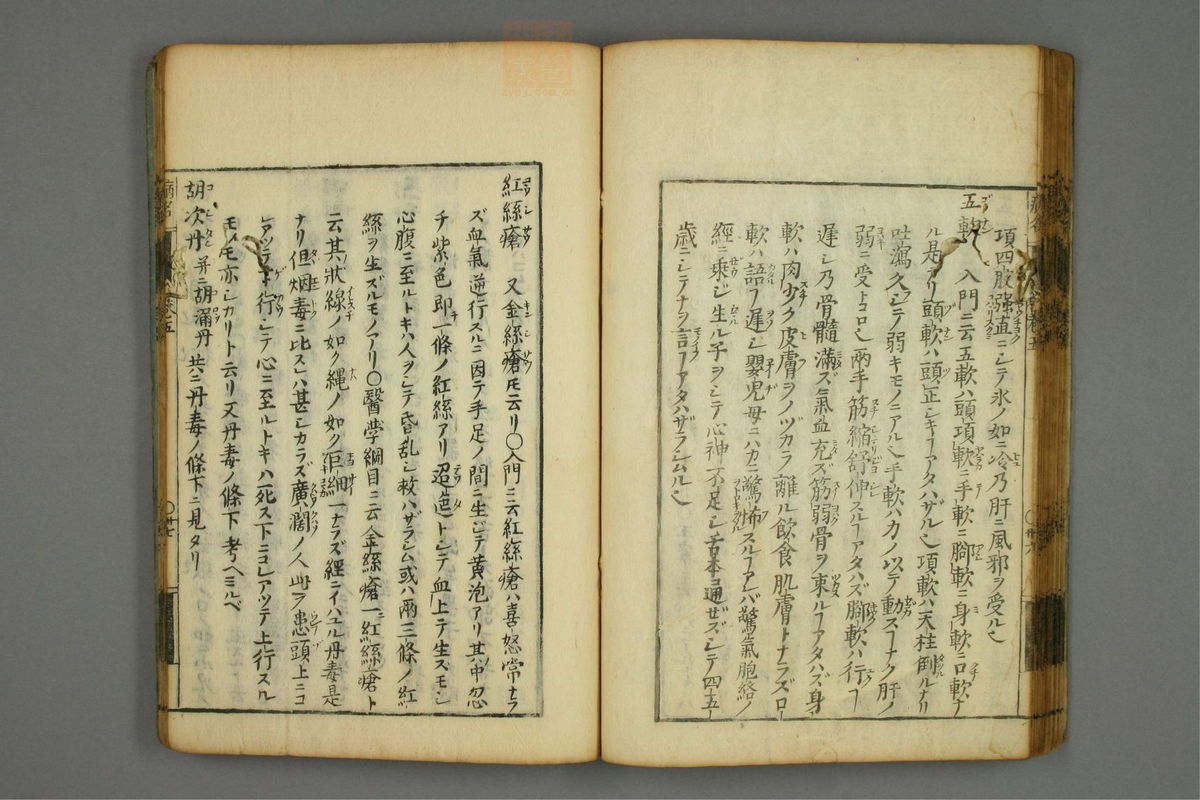 項四肢強直ニシテ氷ノ如ニ冷乃肝ニ風邪ヲ受ル也
五軟 入門ニ云五軟ハ頭項軟ニ手軟ニ脚軟ニ身軟ニ口軟ナ
ル是ナリ頭軟ハ頭正シキヿアタハザル也項軟ハ天柱倒ルナリ
吐瀉久シテ弱キモノニアル也手軟ハカノ以テ動スヿナク肝ノ
弱ニ受トコロ也兩手筋縮舒伸スルヿアタハズ脚軟ハ行ヿ
遲シ乃骨髓滿ズ氣血充ズ筋弱骨ヲ束ルヿアタハズ身
軟ハ肉少ク皮膚ヲノヅカラ離ル飲食肌膚トナラズ口
軟ハ語ヿ遲シ嬰児母ニハカニ驚怖スルヿアレバ驚氣胞絡ノ
經ニ乘ジ生ル子ヲシテ心神不足シ舌本通ゼズシテ四五
歳ニシテナヲ言ヿアタハザラシムル也
紅絲瘡 又金絲瘡モ云リ〇入門ニ云紅絲瘡ハ喜怒常ナラ
ズ血氣逆行スルニ因テ手足ノ間ニ生ジテ黄泡アリ其中忽
チ紫色即一條ノ紅絲アリ迢迢トシテ血上テ生スモシ
心腹ニ至ルトキハ人ヲシテ昏乱シ救ハザラシム或ハ兩三條ノ紅
絲ヲ生ズルモノアリ〇醫学綱目ニ云金絲瘡一ニ紅絲瘡ト
云其狀線ノ如ク縄ノ如ク巨細一ナラズ經ニイハユル丹毒是
ナリ但烟毒ニ比スレハ甚シカラズ廣濶ノ人此ヲ患頭上ニコ
レアツテ下行シテ心ニ至ルトキハ死ス下ニコレアツテ上行スル
モノモ亦シカリト云リ又丹毒ノ條下考ヘミルベ
胡次丹 并ニ胡漏丹 共ニ丹毒ノ條下ニ見タリ